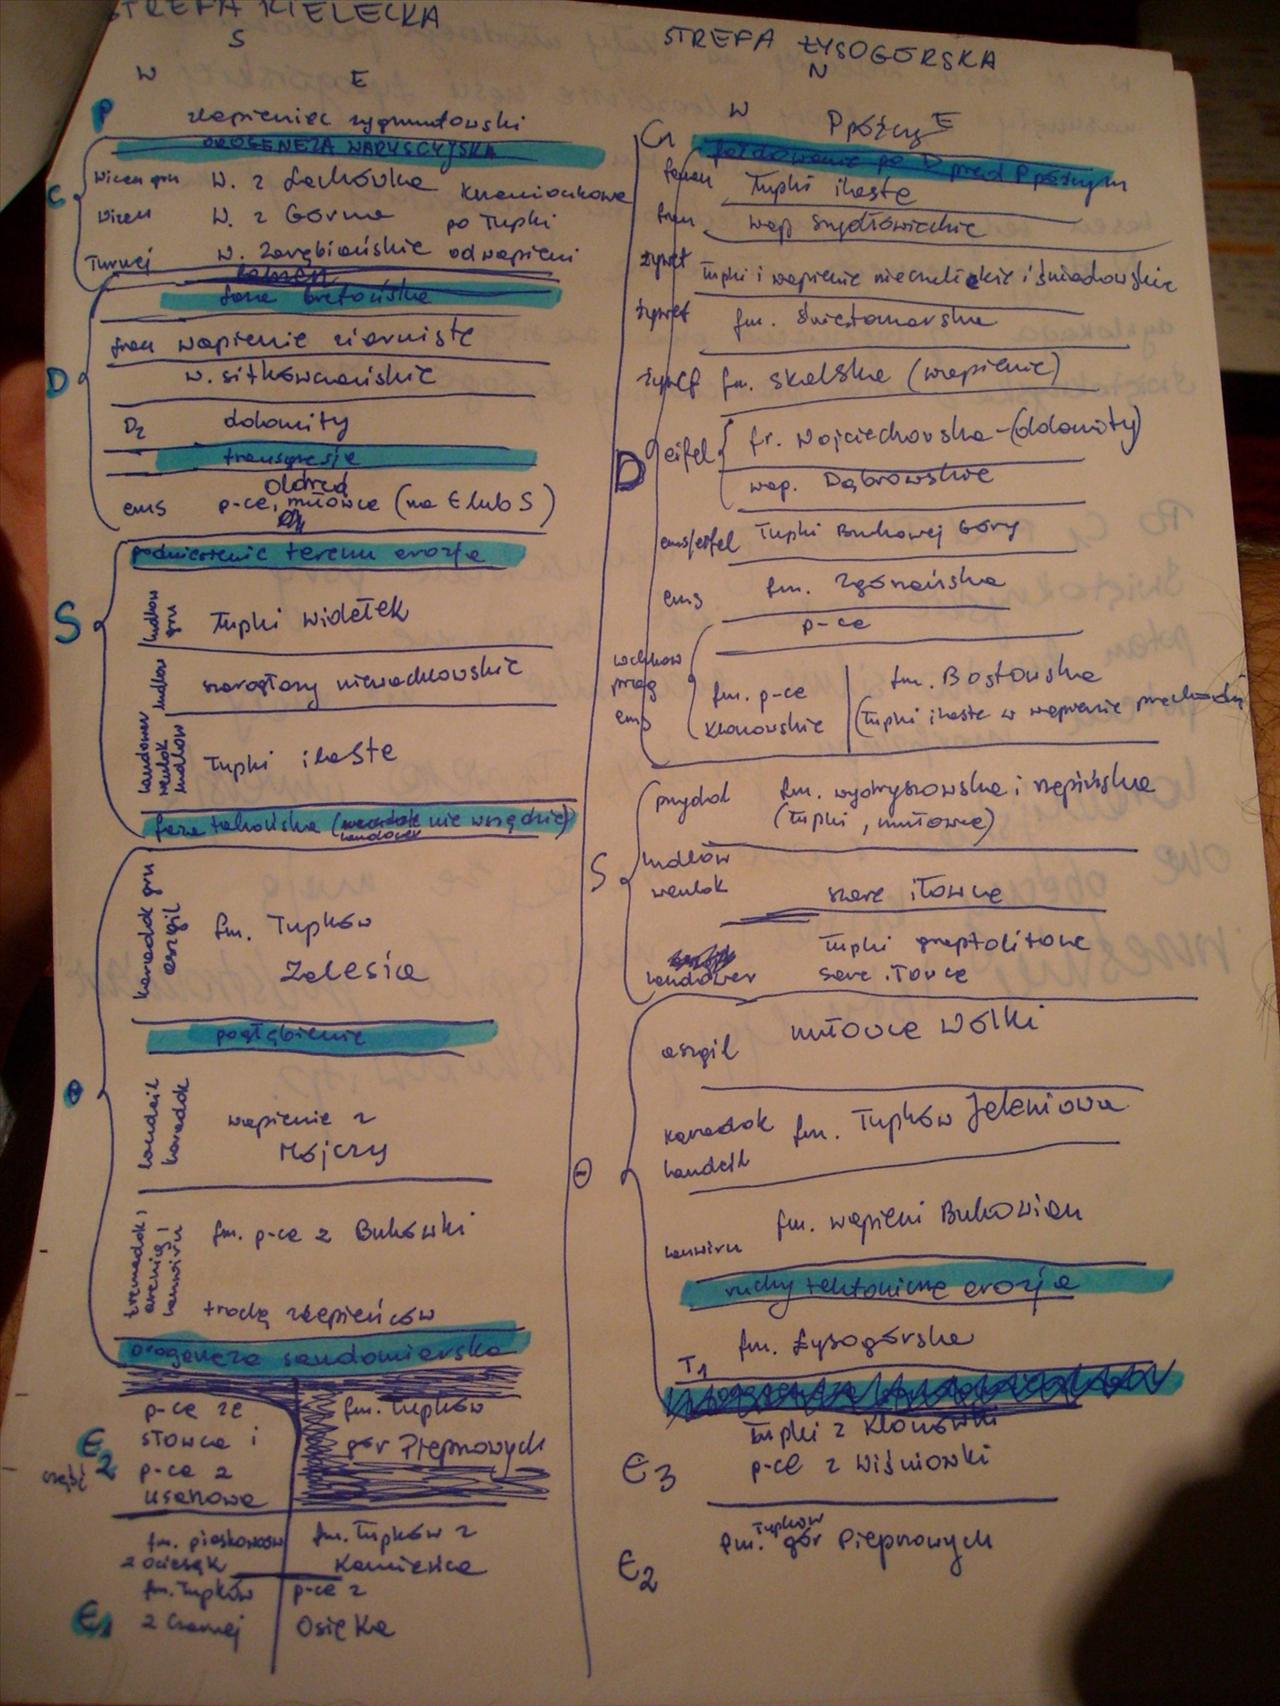 STREFA KIELECKA
S
W E
P zlepieniec zygmuntowski
OROGENEZA WARYSCYJSKA
C
wizen grn w. z Lechówka
wizen w. z Górna po łupki
Turnej w. Zarębiańskie od wapieni
faza bretońska
D
fran wapienie ziarniste
w. sitkówczańskie
D2 dolomity
transgresja
Oldred
ems p-ce, mułowce (na E lub S)
podniesienie terenu erozja
S
ludlow grn łupki widełek
ludlow szarogłazy niewachlowskie
landower wenlok ludlow łupki ilaste
faza takońska (nie wszędzie)
landower
Θ
karadok grn aszgil fm. łupków
Zalesia
pogłębienie
landeil karadok wapienie z
Mójczy
tremadok, arenig, lanwirn fm. p-ce z Bukówki
trochę zlepieńców
orogeneza sandomierska
Є2 część
p-ce ze
słowca i
p-ce z
usarowa
fm. łupków
gór Pieprzowych
fm. piaskowców
z ociesęk
fm. łupków z
Kamieńca
Є1
fm. łupków
z Czarnej
p-ce z
Osięka
STREFA ŁYSOGÓRSKA
N
W E
P późny
C1 fałdowanie po D przed P późnym
famen łupki ilaste
fran wap szydłowieckie
żywet łupki i wapienie nieczulickie i śniadowskie
żywet fm. świętomarska
żywet fm. skalska (wapienie)
D
eifel fr. Wojciechowska - (dolomity)
wap. Dąbrowskie
ems/eifel łupki Bukowej Góry
ems fm. Zgórzańska
p-ce
lochkow
prag
ems
fm. p-ce
Klonowskie
fm. Bostowska
(łupki ilaste w wapienie przechodzą)
S
przydol fm. wydryszowska i rzepińska
(łupki, mułowce)
ludlów
wenlok szare iłowce
landower łupki graptolitowe
szare iłowce
Θ
aszgil mułowce Wólki
karadok
landeil fm. łupków Jeleniowa
lanwirn fm. wapieni Bukowian
ruchy tektoniczne erozja
T1 fm. Łysogórska
łupki z Klonówki
Є3 p-ce z Wiśniówki
Є2 fm. łupków gór Pieprzowych